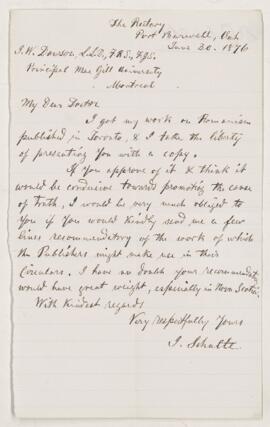 The Rectory
Port Burwell, Ont
June 20. 1876
J. W. Dawson, L.L.D, F.R.S, F.G.S.
Principal Mc Gill University
Montreal
My Dear Doctor
I got my work on Romanism
published in Toronto, & I take the liberty
of presenting you with a copy.
If you approve of it & think it
would be conducive towards promoting the cause
of truth, I would be very much obliged to
you if you would kindly send me a few
lines recommendatory of the work of which
the Publishers might make use in their
Circulars. I have no doubt your recommendation
would have great weight, especially in Nova Scotia.
With Kindest regards
Very respectfully Yours
J. Schulte